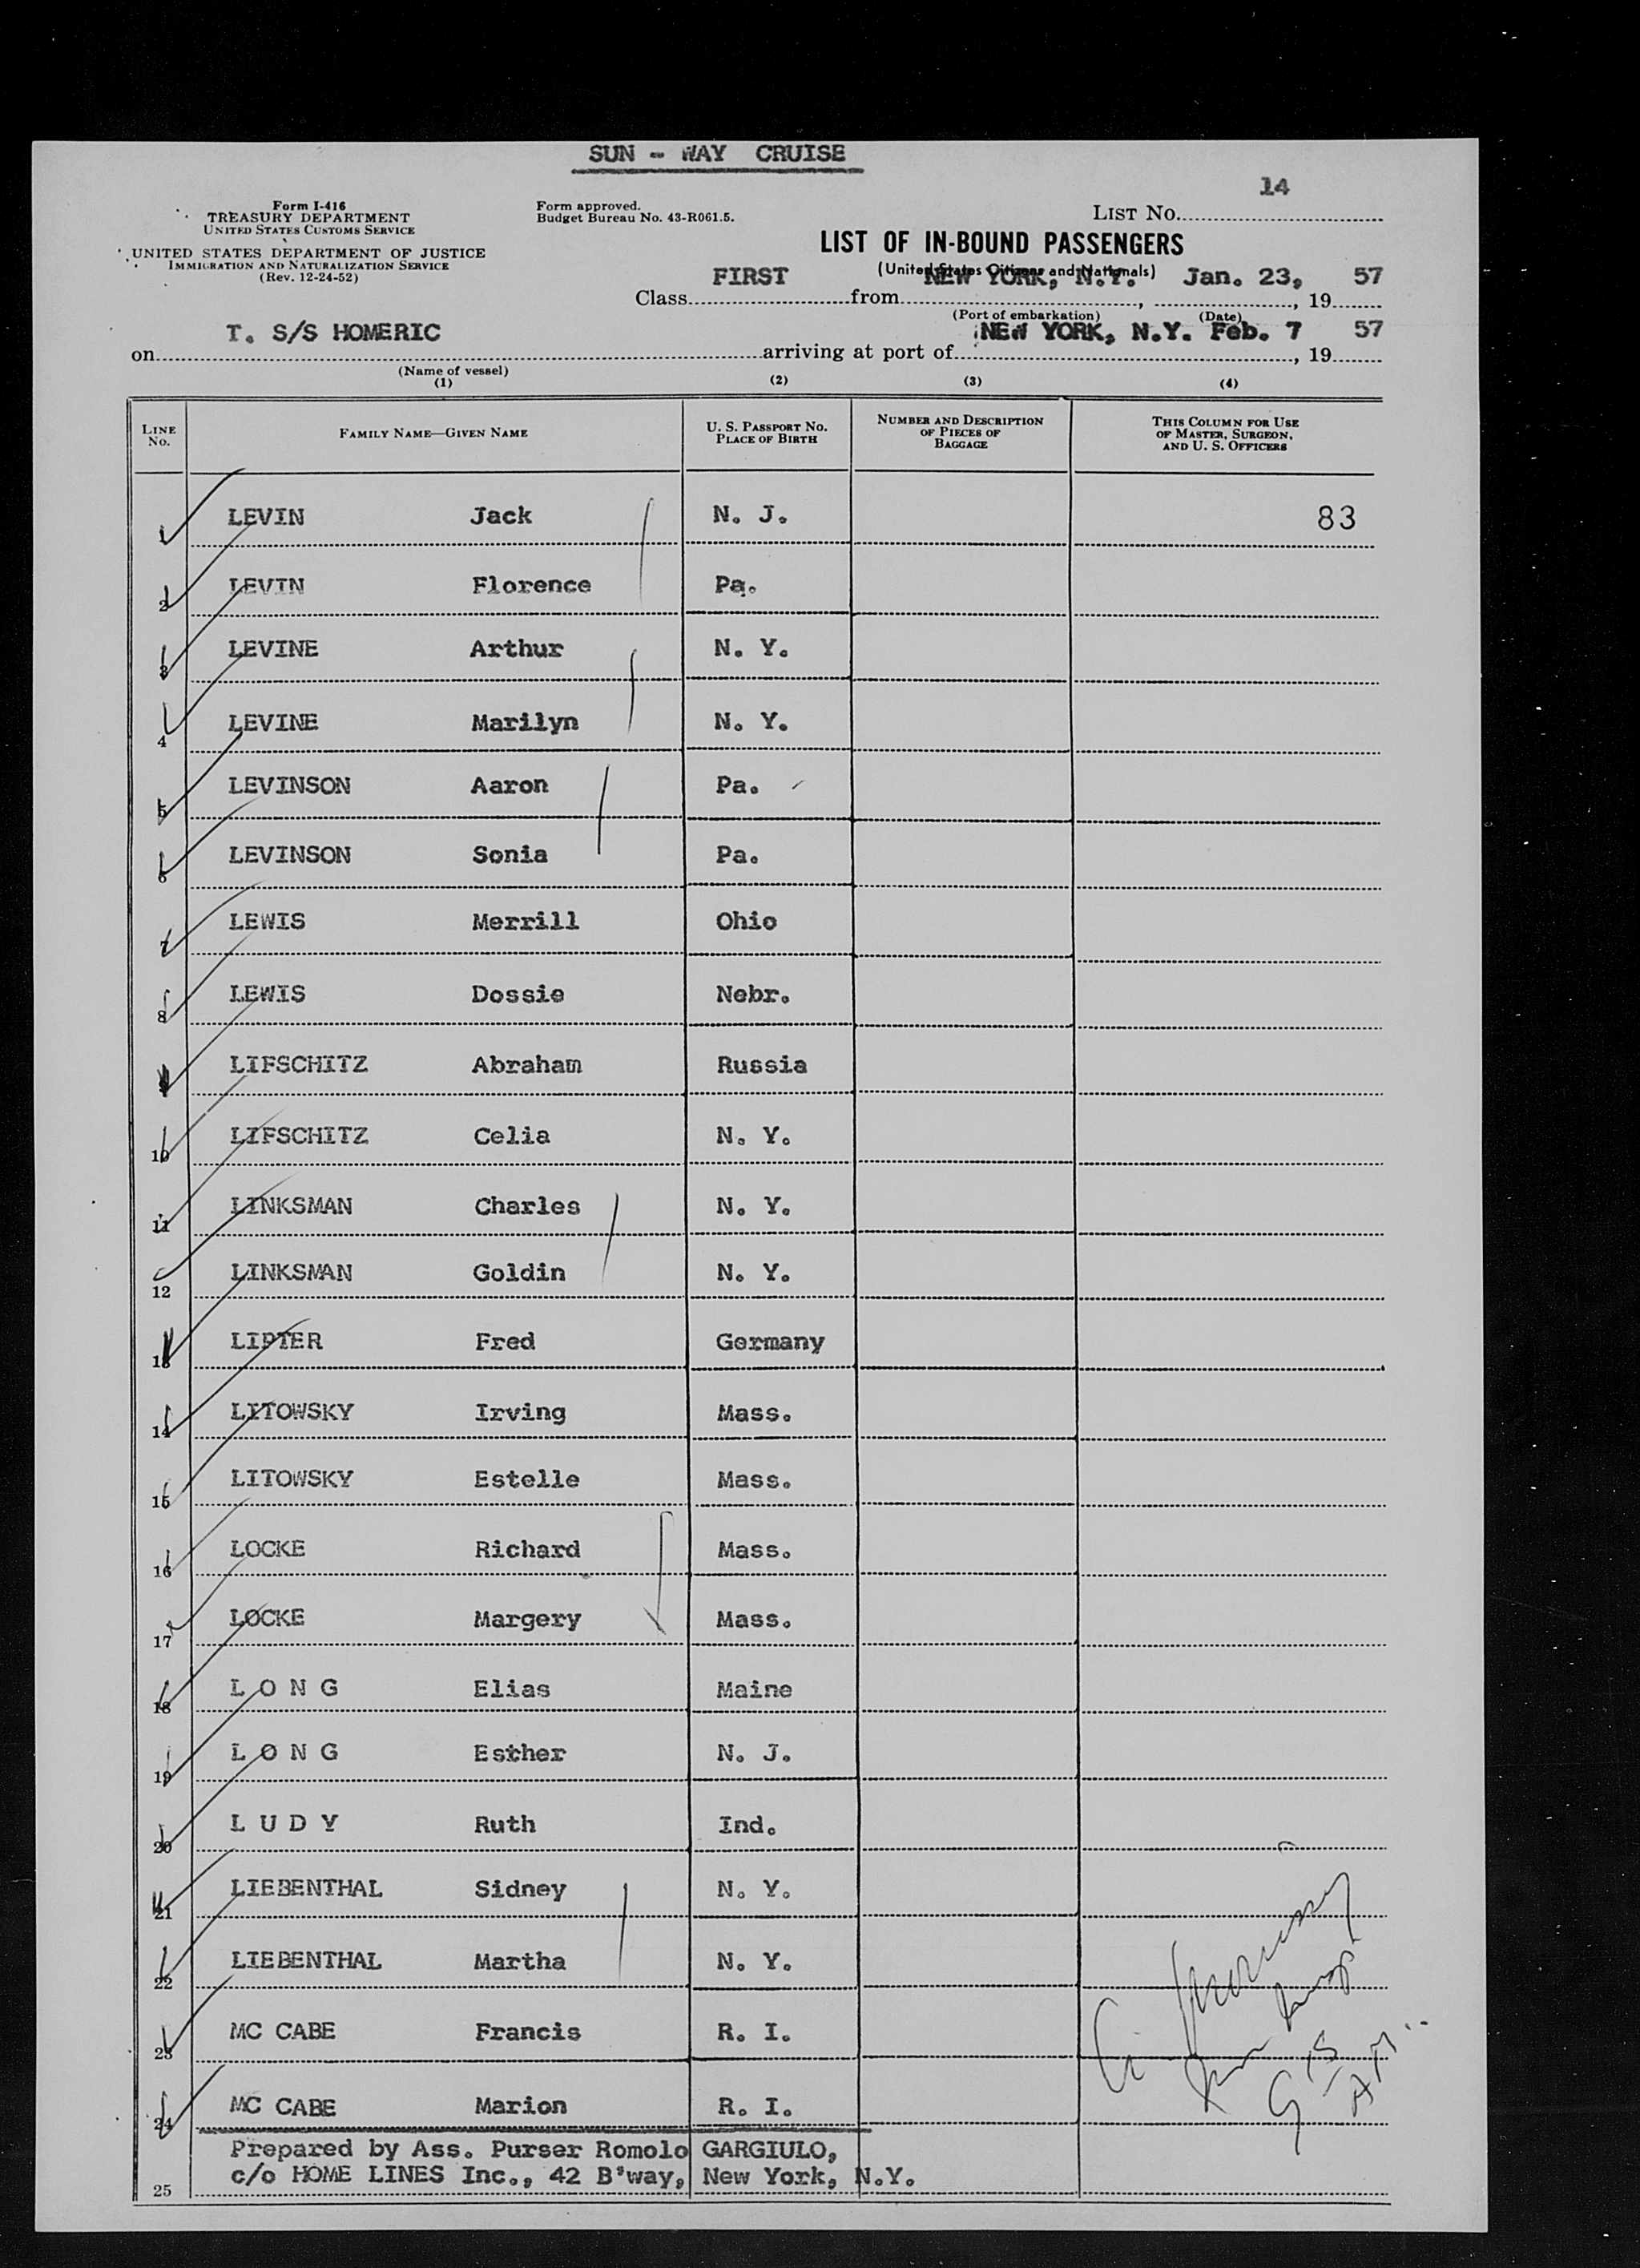 SUN - WAY CRUISE
14
Form I-416
TREASURY DEPARTMENT
UNITED STATES CUSTOMS SERVICE
UNITED STATES DEPARTMENT OF JUSTICE
IMMIGRATION AND NATURALIZATION SERVICE
(Rev. 12-24-52)
Form approved.
Budget Bureau No. 43-R061.5.
LIST No.
LIST OF IN-BOUND PASSENGERS
(United States Citizens and Nationals)
Class FIRST from NEW YORK, N.Y. , Jan. 23, , 19 57
(Port of embarkation) (Date)
on T. S/S HOMERIC arriving at port of NEW YORK, N.Y. Feb. 7 , 19 57
(Name of vessel)
(1) (2) (3) (4)
LINE No. FAMILY NAME—GIVEN NAME U. S. PASSPORT No. PLACE OF BIRTH NUMBER AND DESCRIPTION OF PIECES OF BAGGAGE THIS COLUMN FOR USE OF MASTER, SURGEON, AND U. S. OFFICERS
1 LEVIN Jack N. J. 83
2 LEVIN Florence Pa.
3 LEVINE Arthur N. Y.
4 LEVINE Marilyn N. Y.
5 LEVINSON Aaron Pa.
6 LEVINSON Sonia Pa.
7 LEWIS Merrill Ohio
8 LEWIS Dossie Nebr.
LIFSCHITZ Abraham Russia
10 LIFSCHITZ Celia N. Y.
11 LINKSMAN Charles N. Y.
12 LINKSMAN Goldin N. Y.
13 LIPTER Fred Germany
14 LITOWSKY Irving Mass.
15 LITOWSKY Estelle Mass.
16 LOCKE Richard Mass.
17 LOCKE Margery Mass.
18 L O N G Elias Maine
19 L O N G Esther N. J.
20 L U D Y Ruth Ind.
21 LIEBENTHAL Sidney N. Y.
22 LIEBENTHAL Martha N. Y.
23 MC CABE Francis R. I.
24 MC CABE Marion R. I.
Prepared by Ass. Purser Romolo GARGIULO,
c/o HOME LINES Inc., 42 B'way, New York, N.Y.
25